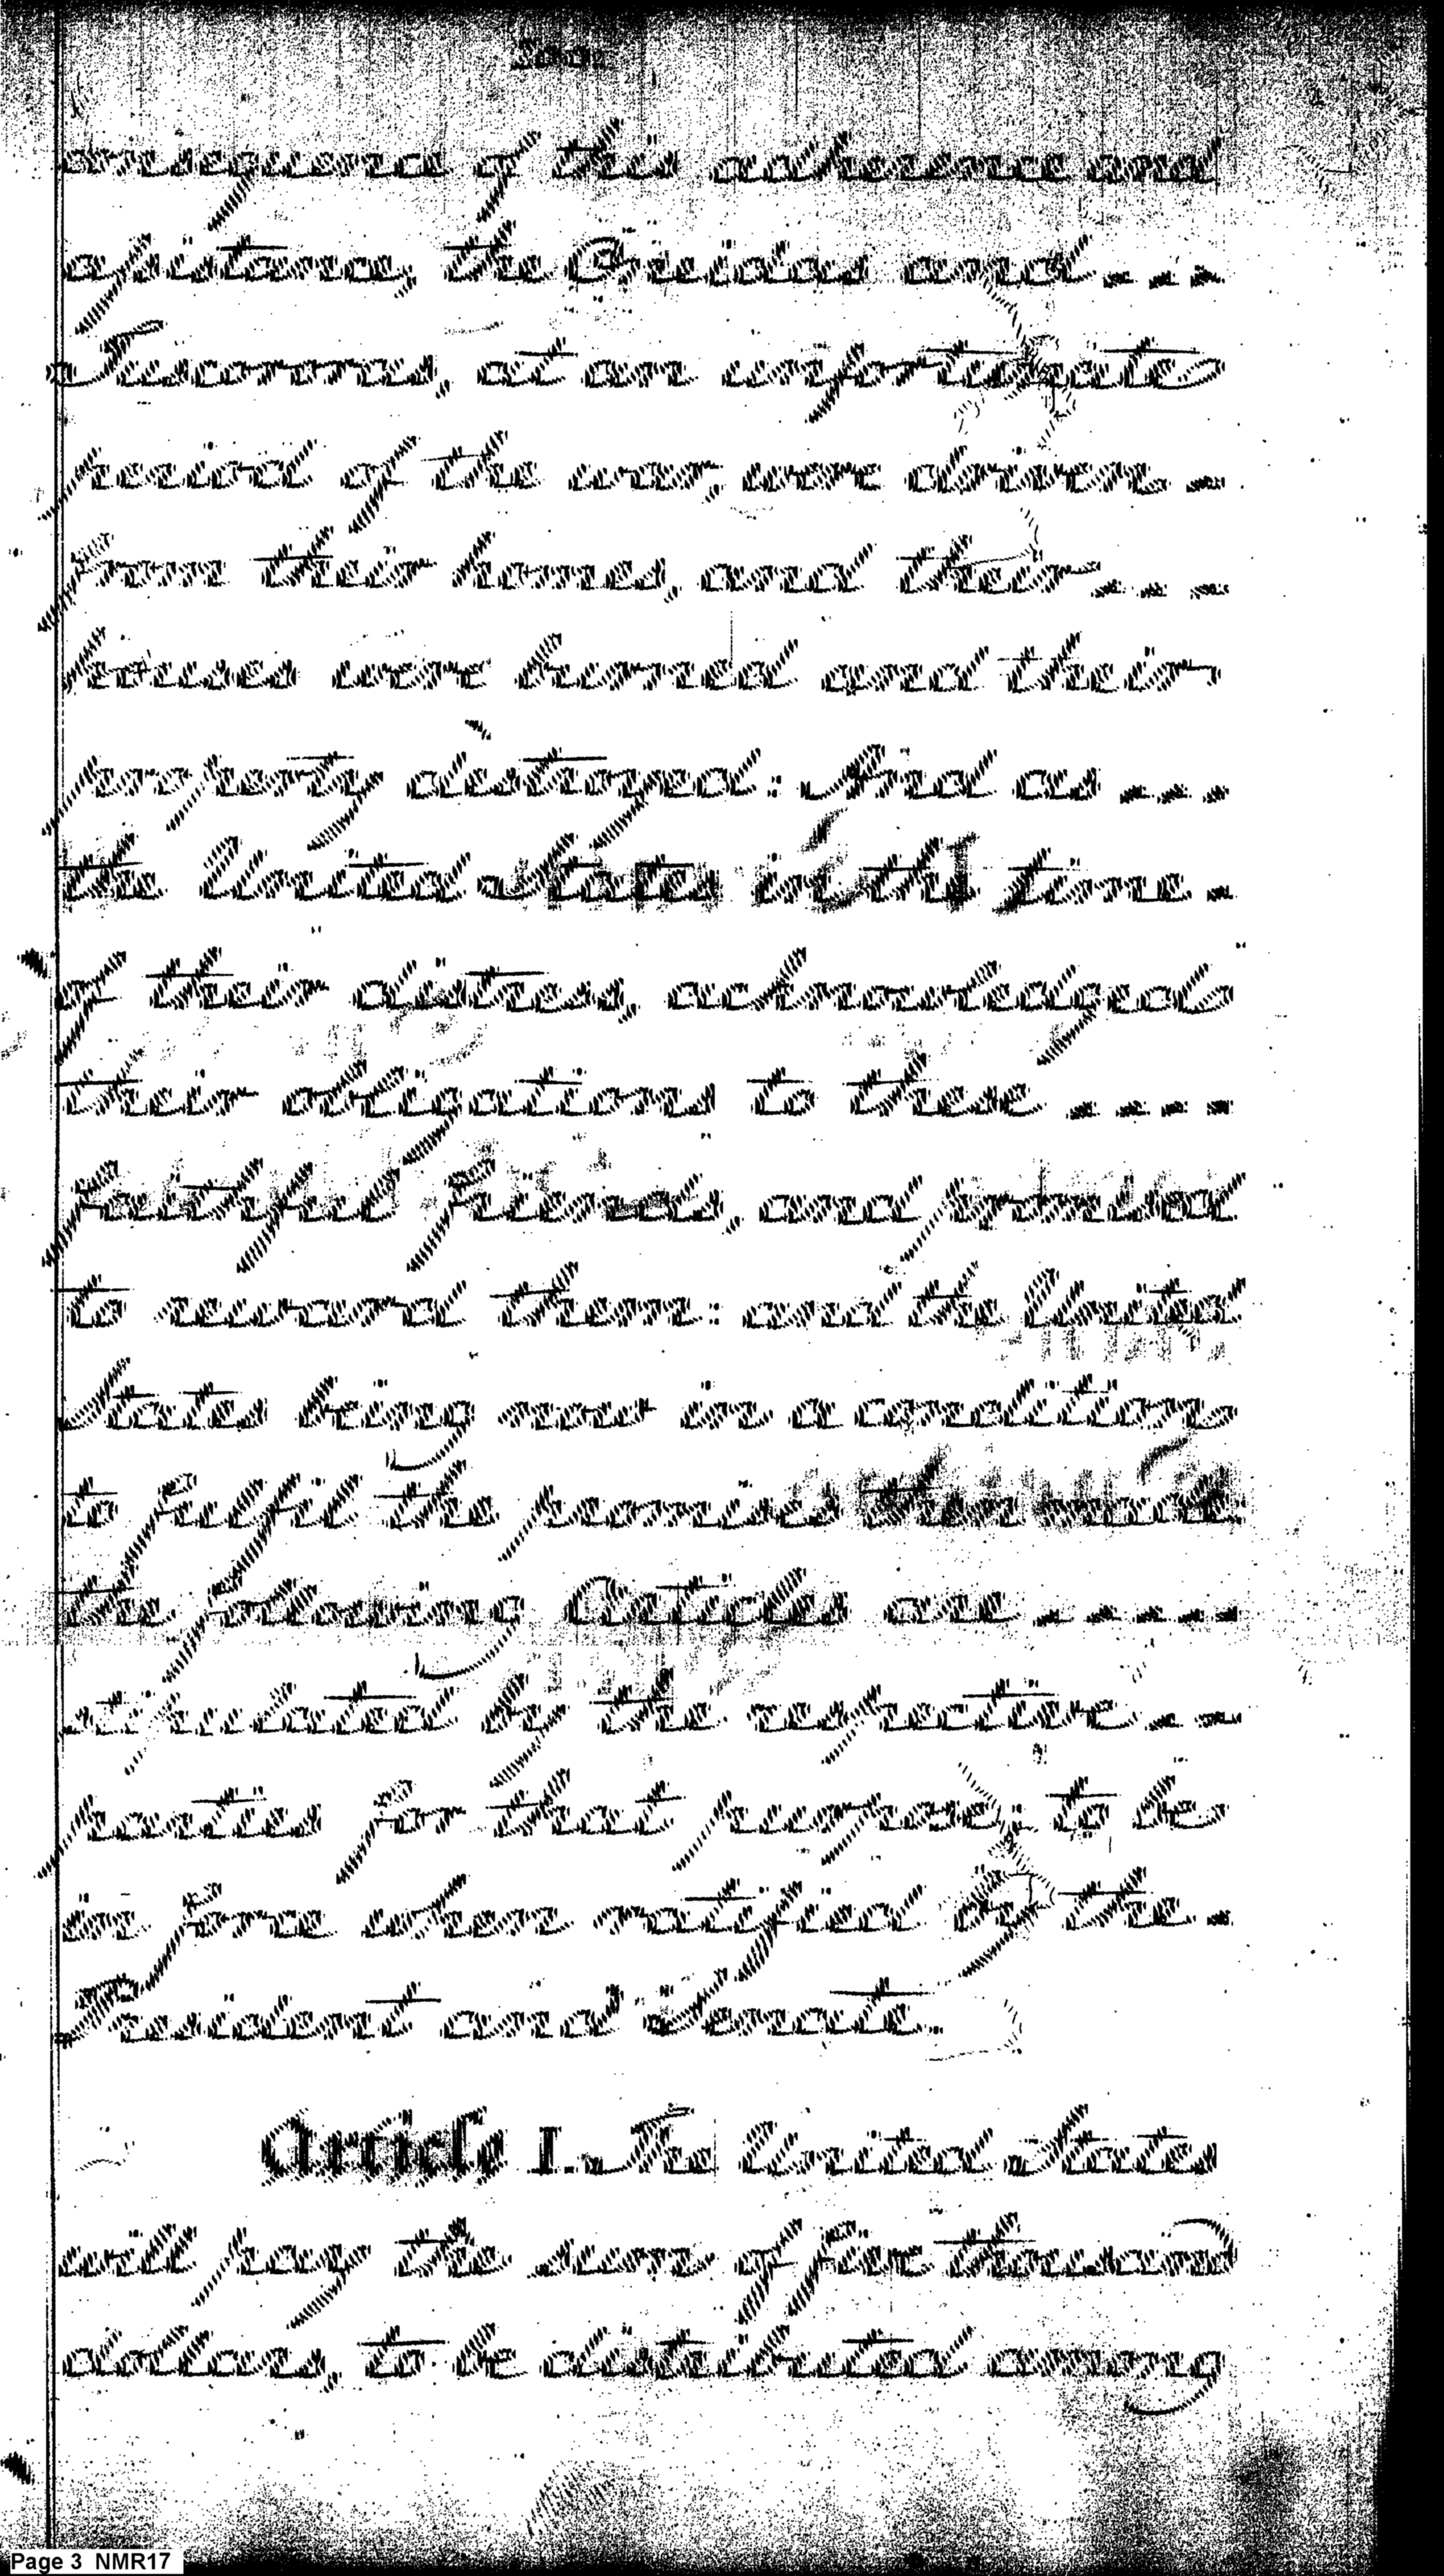 onsequence of this adherence and
assistance, the Oneidas and
Tuscororas, at an unfortunate
period of the war, were driven
from their homes, and their
houses were burned and their
property destroyed: And as
the United States in the time
of their distress, acknowledged
their obligations to these
faithful friends, and promised
to reward them: and the United
States being now in a condition
to fulfil the promises then made,
the following Articles are
stipulated by the respective
parties for that purpose; to be
in force when ratified by the
President and Senate.
Article I. The United States
will pay the sum of five thousand
dollars, to be distributed among
Page 3 NMR17